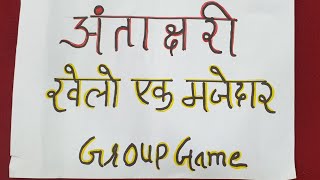 अंताक्षरी
खेलो एक मजेदार
GROUP Game